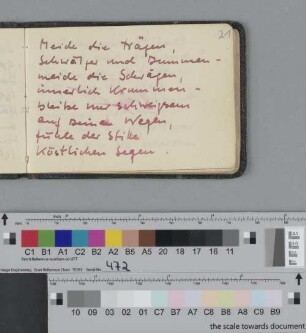 21
Meide die Trägen,
Schwätzer und Dummen-
meide die Schrägen,
innerlich Krummen-
bleibe nur schweigsam
auf Deinen Wegen,
fühle der Stille
köstlichen Segen.
C1 B1 A1 C2 B2 A2 B5 A5 20 18 17 16 11
472
10 09 03 02 01 C7 B7 A7 C8 B8 A8 C9 B9
the scale towards document